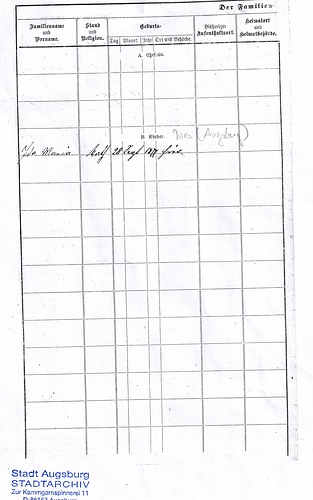 Der Familien
Familienname und Vorname.
Stand und Religion.
Geburts-
Tag Monat Jahr Ort und Behörde.
Bisheriger Aufenthaltsort.
Heimatort und Heimatbehörde.
A. Ehefrau.
B. Kinder. hier (Augsburg)
Ida Maria kath 28 Sept 1877 hier
Stadt Augsburg
STADTARCHIV
Zur Kammgarnspinnerei 11
D-86153 Augsburg